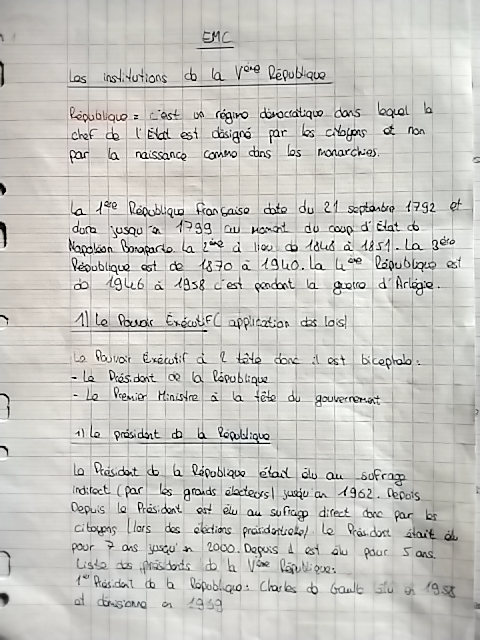 EMC
Les institutions de la Vème République
République = c'est un régime démocratique dans lequel le
chef de l'État est désigné par les citoyens et non
par la naissance comme dans les monarchies.
La 1ère République Française date du 21 septembre 1792 et
dura jusqu'en 1799 au moment du coup d'État de
Napoléon Bonaparte. La 2ème à lieu de 1848 à 1851. La 3ère
République est de 1870 à 1940. La 4ème République est
de 1946 à 1958 c'est pendant la guerre d'Arlégie.
1) Le Pouvoir Exécutif (application des lois)
Le Pouvoir Exécutif à 2 tête donc il est bicephale :
- Le Président de la République
- Le Premier Ministre à la tête du gouvernement
1) Le président de la République
Le Président de la République était élu au sufrage
indirect (par les grands électeurs) jusqu'en 1962. Depuis
Depuis le Président est élu au sufrage direct donc par les
citoyens (lors des élections présidentielles). Le Président était élu
pour 7 ans jusqu'en 2000. Depuis il est élu pour 5 ans.
Liste des présidents de la Vème République :
1er Président de la République : Charles de Gaulle élu en 1958
et démissionne en 1969